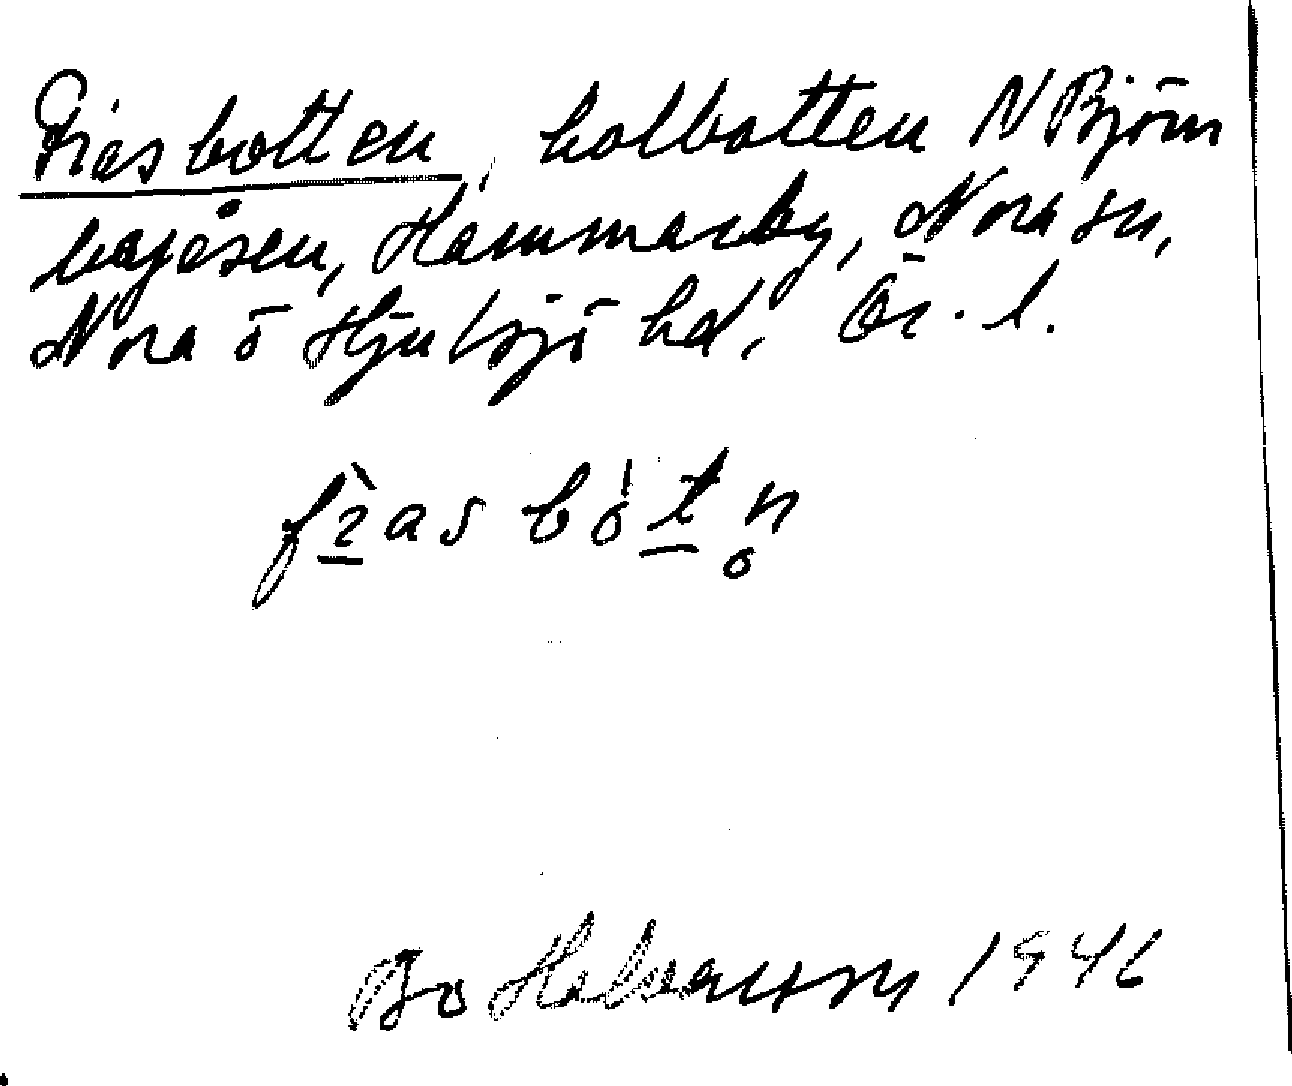 Fiasbotten, kolbotten N Björn
bergåsen, Hammarby, Nora sn,
Nora o Hjulsjö hd, Ör. l.
fìas bótn̥
Bo 1946